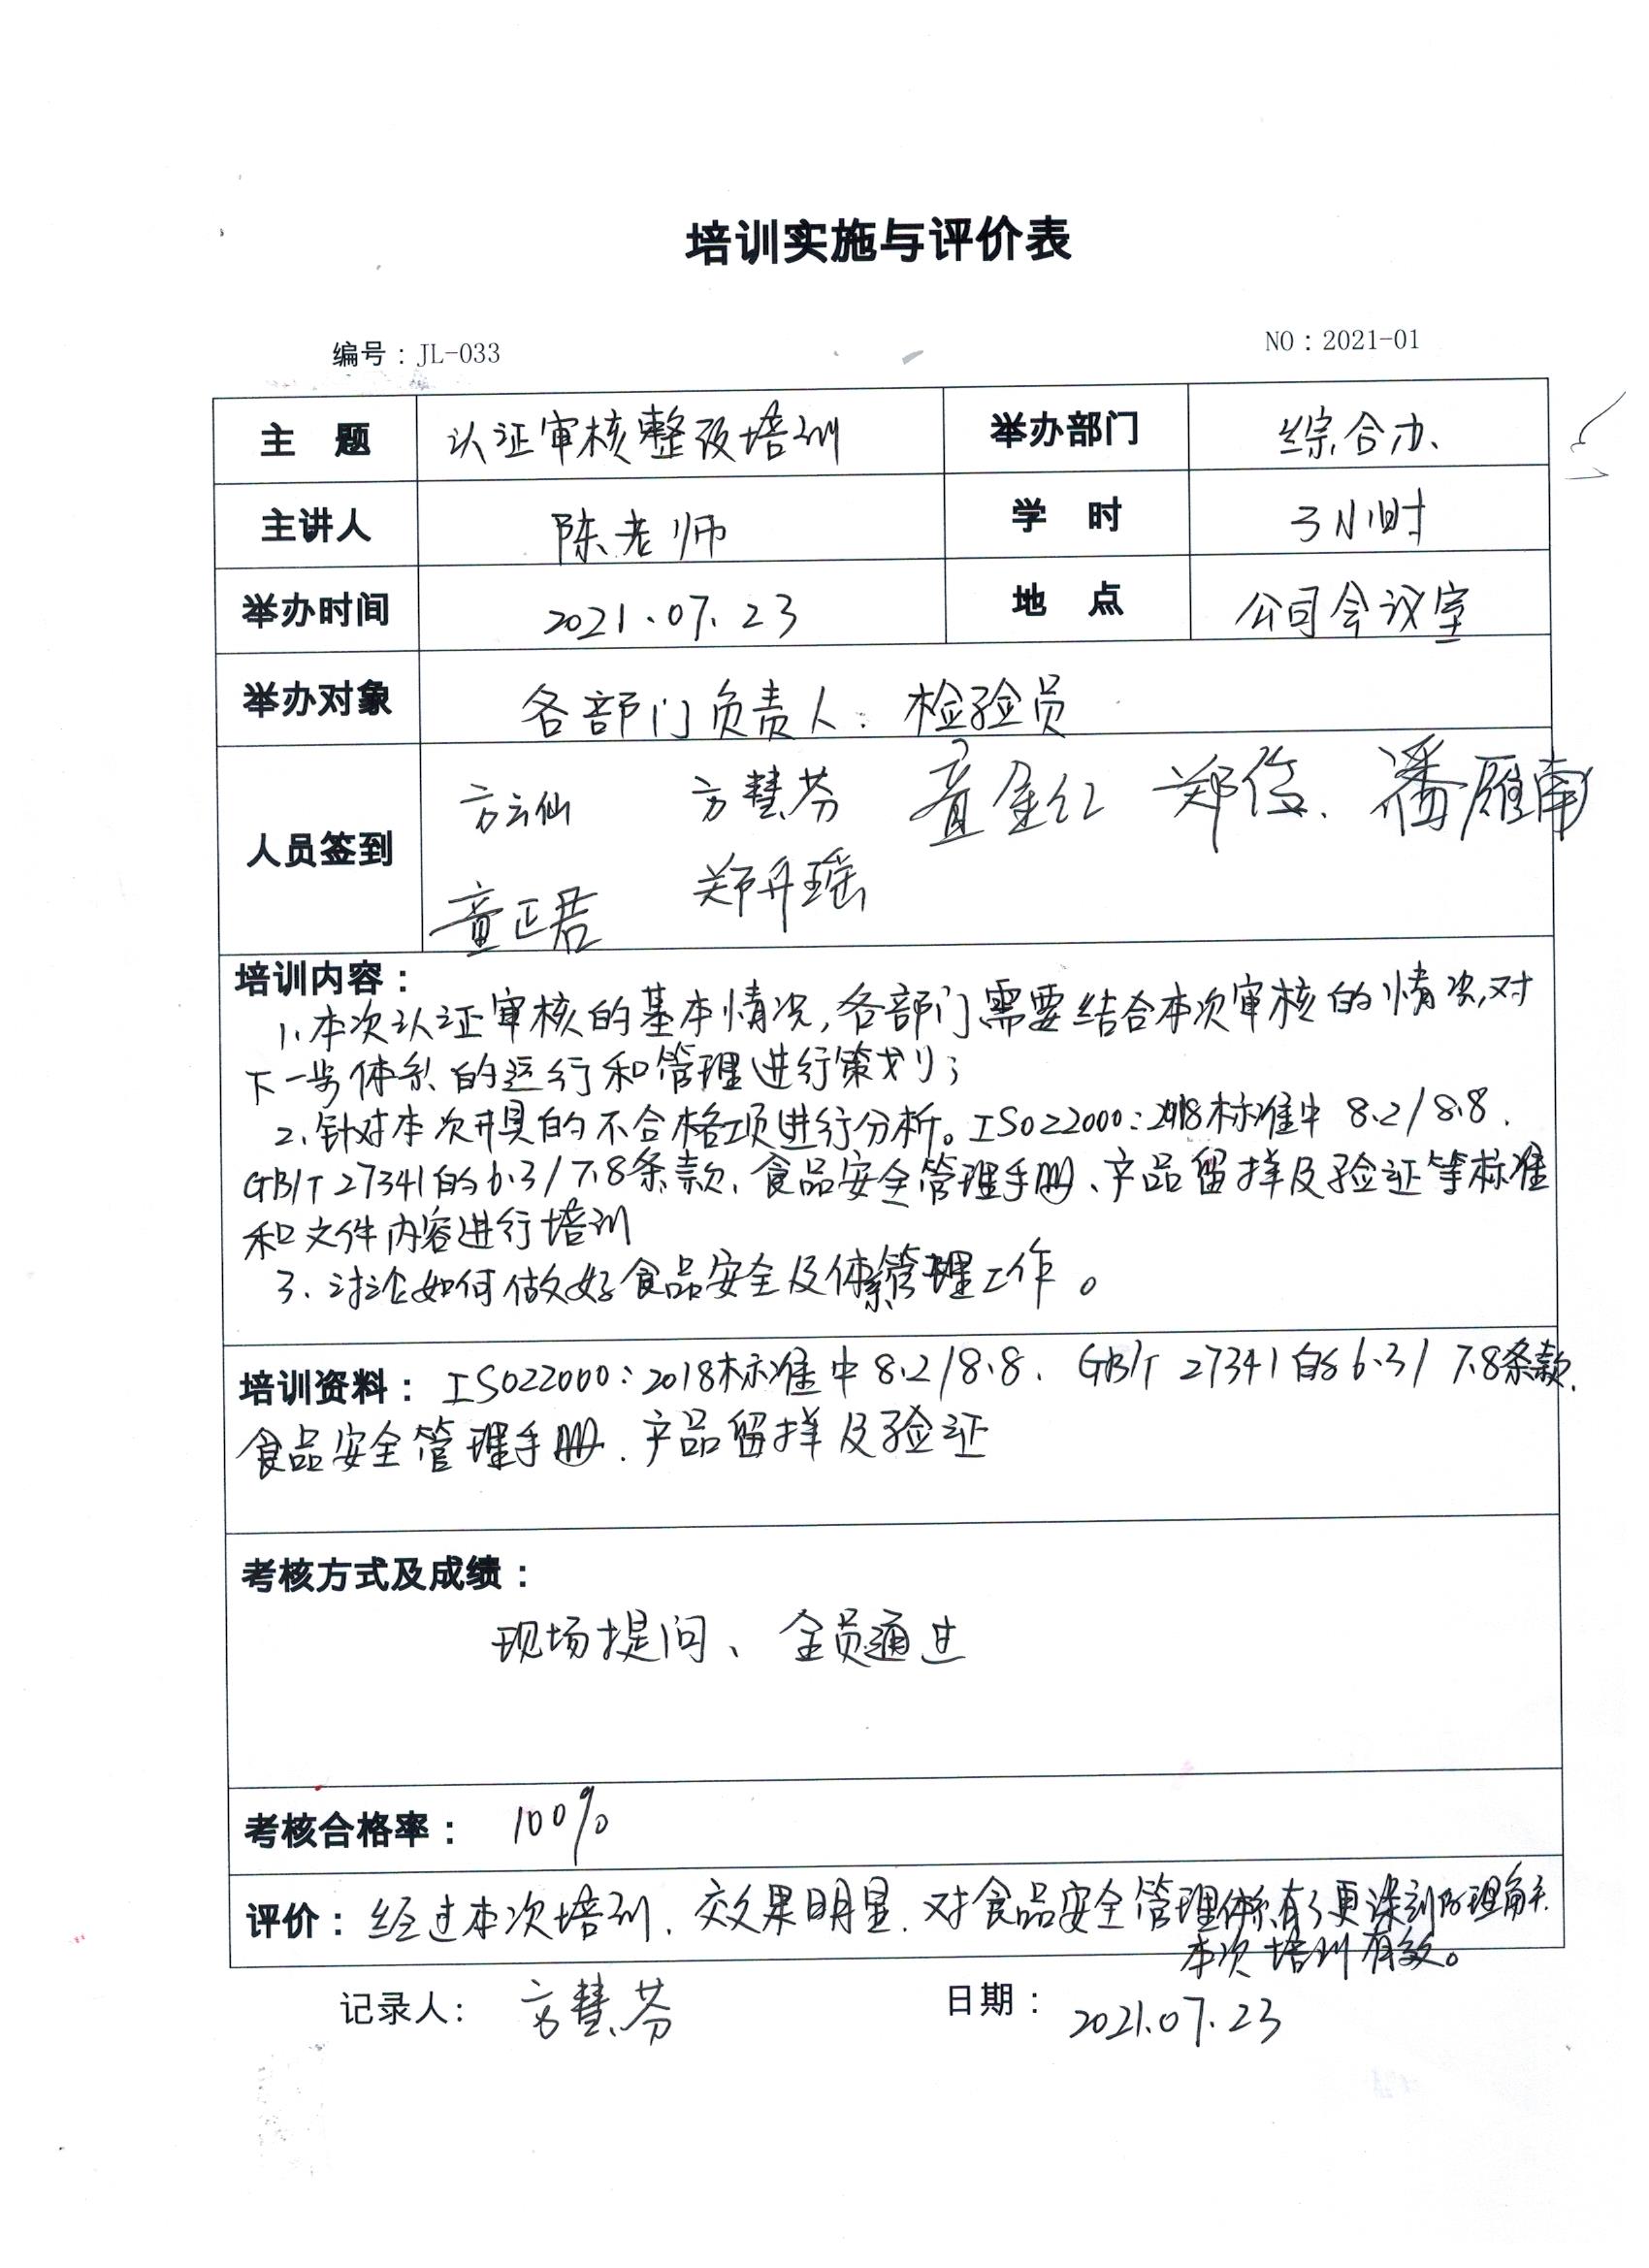 培训实施与评价表
编号：JL-033
NO：2021-01
主 题 认证审核整改培训 举办部门 综合办、
主讲人 陈老师 学 时 3小时
举办时间 2021.07.23 地 点 公司会议室
举办对象 各部门负责人、检验员
人员签到 方云仙 方慧芬 童金红 郑俊、潘雁南
童正君 郑丹瑶
培训内容：
1、本次认证审核的基本情况，各部门需要结合本次审核的情况，对
下一步体系的运行和管理进行策划；
2、针对本次开具的不合格项进行分析。ISO22000：2018标准中 8.2/8.8、
GB/T 27341的6.3/7.8条款、食品安全管理手册、产品留样及验证等标准
和文件内容进行培训
3、讨论如何做好食品安全及体系管理工作。
培训资料：ISO22000：2018标准中8.2/8.8、GB/T 27341的6.3/7.8条款、
食品安全管理手册、产品留样及验证
考核方式及成绩：
现场提问、全员通过
考核合格率：100%
评价：经过本次培训、效果明显、对食品安全管理体系有了更深刻的理解、
本次培训有效。
记录人：方慧芬 日期：2021.07.23